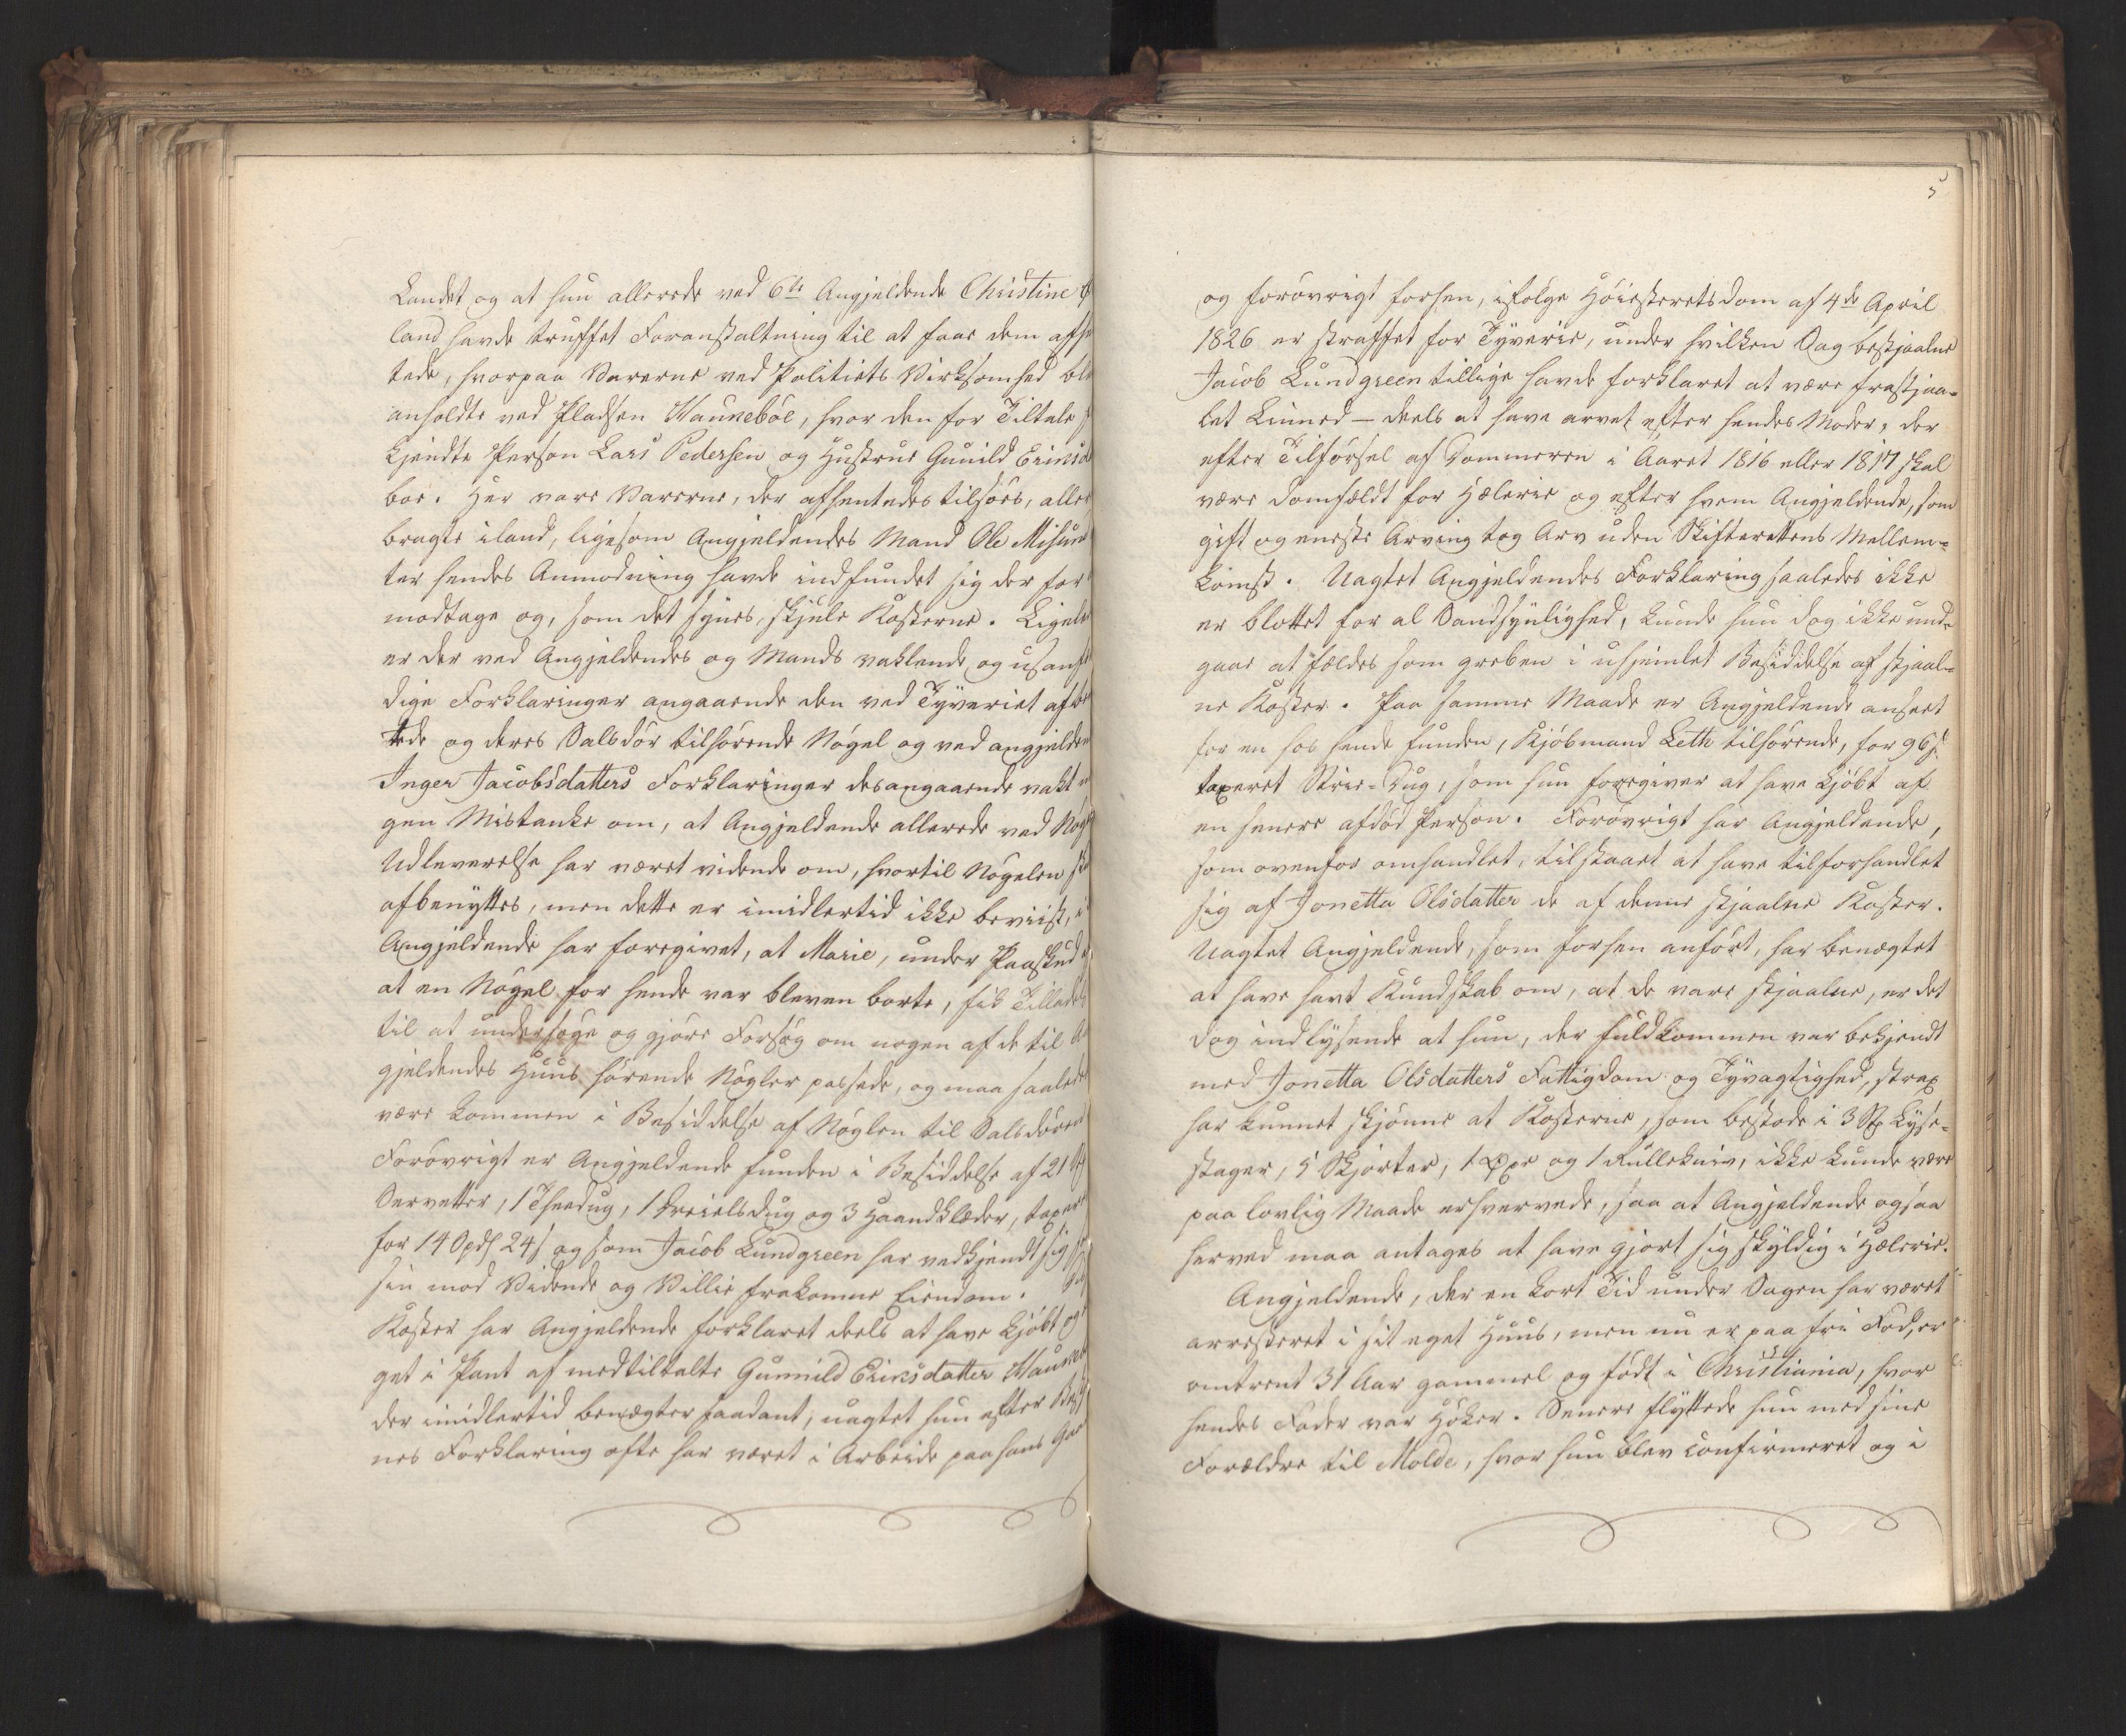 Landet og at hun allerede ved 6te Angjeldende Christine
land havde truffet Foranstaltning til at faae dem afh
tede, hvorpaa Varerne ved Politiets Virksomhed ble
anholdte ved Pladsen Haunebøe, hvor den for Tiltale
kjendte Person Lars Pedersen og Hustrue Gunild Erichsd
boe. Her vare Varerne, der afhentedes tilsøes, aller
bragte iland, ligesom Angjeldendes Mand Ole Misund
ter hendes Anmodning havde indfundet sig der for
modtage og, som det synes, skjule Kosterne. Ligele
er der ved Angjeldendes og Mands vaklende og usand
dige Forklaringer angaaende den ved Tyveriet afbe
tede og deres Salsdør tilhørende Nøgel og ved angjelden
Inger Jacobsdatters Forklaringer desangaaende vakt
gen Mistanke om, at Angjeldende allerede ved Nøg
Udleverelse har været vidende om, hvortil Nøgelen
afbenyttes, men dette er imidlertid ikke beviist,
Angjeldende har foregivet, at Marie, under Paaskud
at en Nøgel for hende var bleven borte, fik Tillade
til at undersøge og gjøre Forsøg om nogen af de til
gjeldendes Huus hørende Nøgler passede, og maa saalede
være kommen i Besiddelse af Nøglen til Salsdøren
Forøvrigt er Angjeldende funden i Besiddelse af 21
Servetter, 1 Theedug, 1 Dreielsdug og 3 Haandklæder, taxere
for 14 Spd 24 s og som Jacob Lundgreen har vedkjendt sig
sin mod Vidende og Villie frakomne Eiendom.
Koster har Angjeldende forklaret deels at have kjøbt og
get i Pant af medtiltalte Gunnild Erichsdatter Haune
der imidlertid benægter saadant, uagtet hun efter
nes Forklaring ofte har været i Arbeide paa hans Gaa
5
og forøvrigt forhen, ifølge Høiesteretsdom af 4de April
1826 er straffet for Tyverie, under hvilken Sag bestjaalne
Jacob Lundgreen tillige havde forklaret at være frastjaa-
let Linned – deels at have arvet efter hendes Moder, der
efter Tilførsel af Dommeren i Aaret 1816 eller 1817 skal
være domfældt for Hælerie og efter hvem Angjeldende, som
gift og eneste Arving tog Arv uden Skifterettens Mellem-
komst. Uagtet Angjeldendes Forklaring saaledes ikke
er blottet for al Sandsynlighed, kunde hun dog ikke und-
gaae at fældes som greben i uhjemlet Besiddelse af stjaal-
ne Koster. Paa samme Maade er Angjeldende anseet
for en hos hende funden, Kjøbmand Leth tilhørende, for 96 s
taxeret Strie-Dug, som hun foregiver at have kjøbt af
en senere afdød Person. Forøvrigt har Angjeldende,
som ovenfor omhandlet, tilstaaet at have tilforhandlet
sig af Jonetta Olsdatter de af denne stjaalne Koster.
Uagtet Angjeldende, som forhen anført, har benægtet
at have havt Kundskab om, at de vare stjaalne, er det
dog indlysende at hun, der fuldkommen var bekjendt
med Jonetta Olsdatters Fattigdom og Tyvagtighed, strax
har kunnet skjønne at Kosterne, som bestode i 3 St Lyse-
stager, 5 Skjorter, 1 Øxe og 1 Rullekniv, ikke kunde være
paa lovlig Maade erhvervede, saa at Angjeldende ogsaa
herved maa antages at have gjort sig skyldig i Hælerie.
Angjeldende, der en kort Tid under Sagen har været
arresteret i sit eget Huus, men nu er paa fri Fod, er
omtrent 31 Aar gammel og født i Christiania, hvor
hendes Fader var Høker. Senere flyttede hun med sine
Forældre til Molde, hvor hun blev confirmeret og i